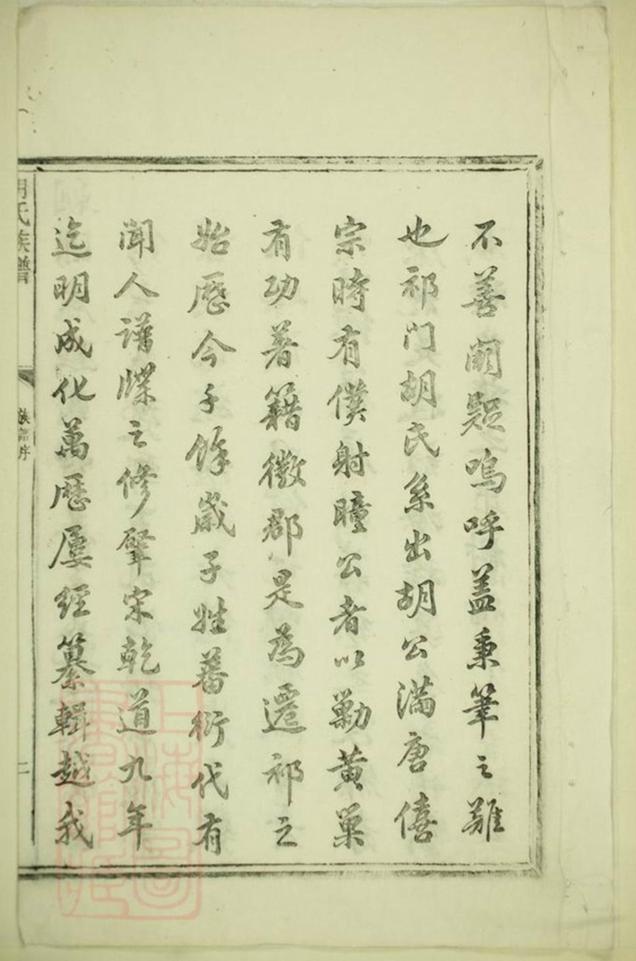 不善闕疑嗚呼盖秉筆之難
也祁門胡氏系出胡公滿唐僖
宗時有僕射瞳公者以勦黃巢
有功著籍徽郡是為遷祁之
始歷今千餘歲子姓蕃衍代有
聞人譜牒之修肇宋乾道九年
迄明成化萬歷屢經纂輯越我
胡氏族譜
族譜序
二
上海圖書館藏